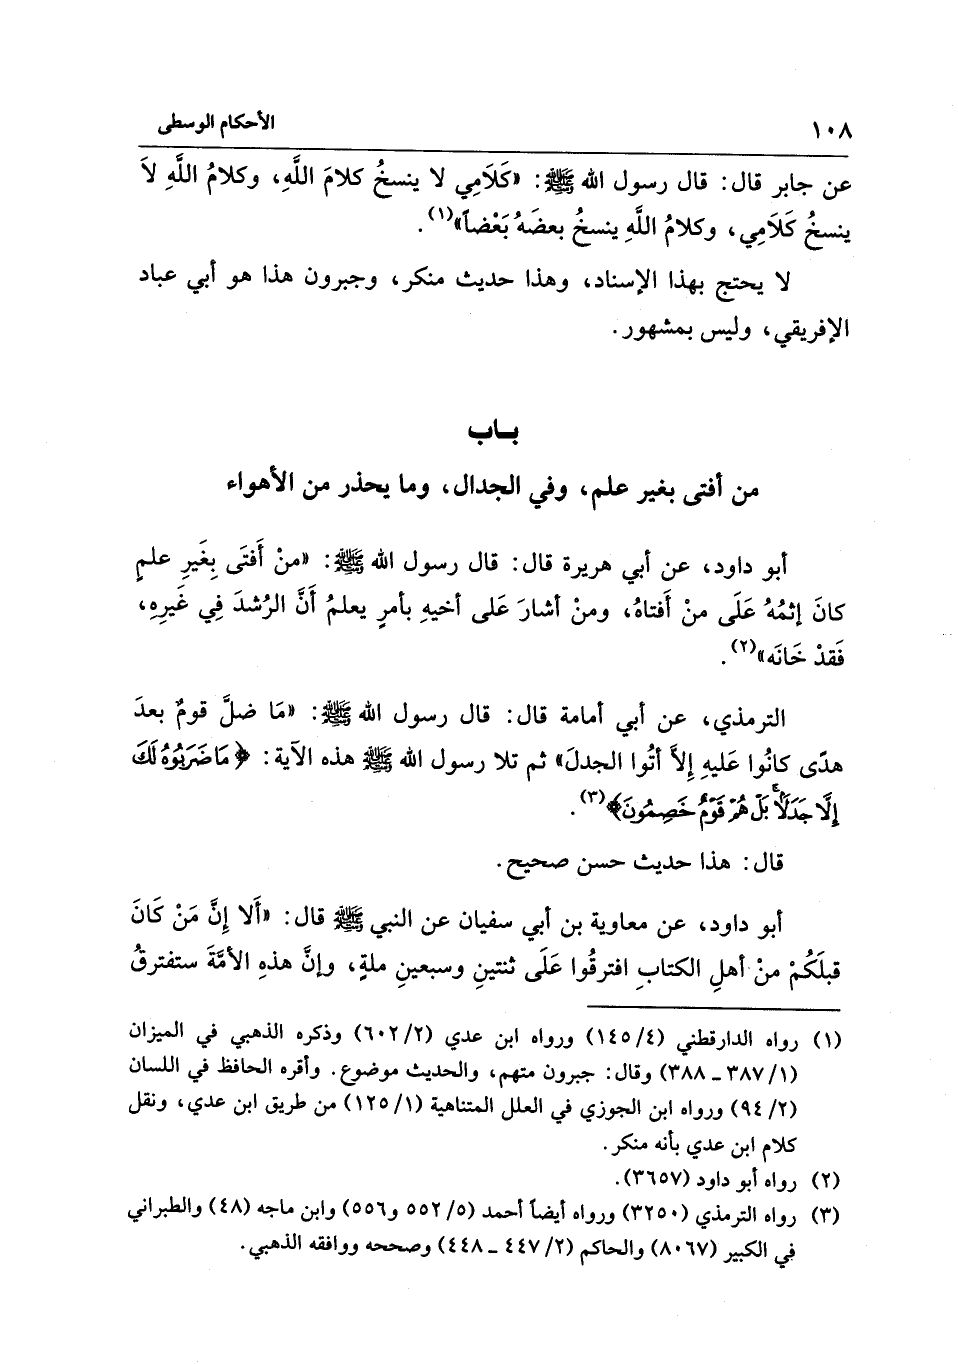 ١٠٨ الأحكام الوسطى
عن جابر قال: قال رسول الله ﷺ: «كَلَامِي لا ينسخُ كلامَ اللَّهِ، وكلامُ اللَّهِ لاَ
ينسخُ كَلَامِي، وكلامُ اللَّهِ ينسخُ بعضَهُ بَعْضاً»(١).
لا يحتج بهذا الإسناد، وهذا حديث منكر، وجبرون هذا هو أبي عباد
الإفريقي، وليس بمشهور.
بـاب
من أفتى بغير علم، وفي الجدال، وما يحذر من الأهواء
أبو داود، عن أبي هريرة قال: قال رسول الله ﷺ: «منْ أَفتَى بِغَيرِ علمٍ
كانَ إثمُهُ عَلَى منْ أَفتاهُ، ومنْ أشارَ عَلى أخيهِ بأمرٍ يعلمُ أَنَّ الرُشدَ فِي غَيرِهِ،
فَقدْ خَانَه»(٢).
الترمذي، عن أبي أمامة قال: قال رسول الله ﷺ: «مَا ضلَّ قومٌ بعدَ
هدًى كانُوا عَليهِ إلاَّ أتُوا الجدلَ» ثم تلا رسول الله ﷺ هذه الآية: ﴿مَا ضَرَبُوهُ لَكَ
إِلَّا جَدَلًا ۚ بَلْ هُمْ قَوْمٌ خَصِمُونَ﴾(٣).
قال: هذا حديث حسن صحيح.
أبو داود، عن معاوية بن أبي سفيان عن النبي ﷺ قال: «أَلا إنَّ مَنْ كَانَ
قبلَكُمْ منْ أهلِ الكتابِ افترقُوا عَلَى ثنتينِ وسبعينِ ملةٍ، وإنَّ هذهِ الأمَّةَ ستفترقُ
(١) رواه الدارقطني (٤/ ١٤٥) ورواه ابن عدي (٢/ ٦٠٢) وذكره الذهبي في الميزان
(١/ ٣٨٧ - ٣٨٨) وقال: جبرون متهم، والحديث موضوع. وأقره الحافظ في اللسان
(٢/ ٩٤) ورواه ابن الجوزي في العلل المتناهية (١/ ١٢٥) من طريق ابن عدي، ونقل
كلام ابن عدي بأنه منكر.
(٢) رواه أبو داود (٣٦٥٧).
(٣) رواه الترمذي (٣٢٥٠) ورواه أيضاً أحمد (٥/ ٥٥٢ و٥٥٦) وابن ماجه (٤٨) والطبراني
في الكبير (٨٠٦٧) والحاكم (٢/ ٤٤٧ - ٤٤٨) وصححه ووافقه الذهبي.